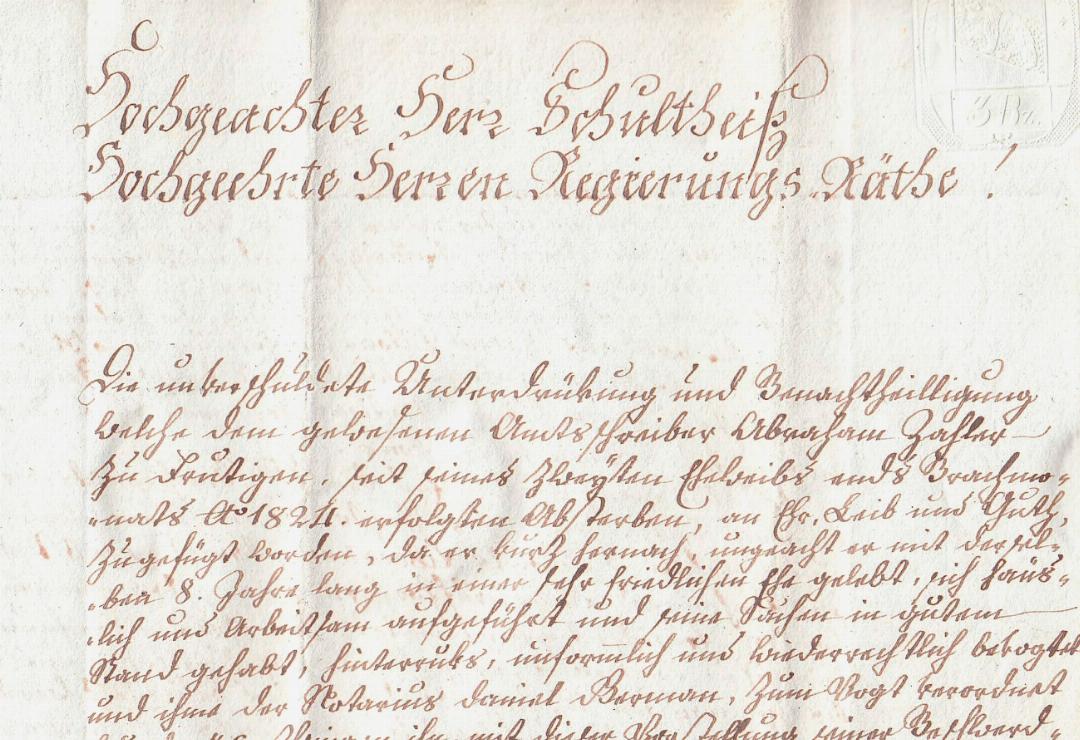 3 Bz.
Hochgeachter Herr Schultheiß
Hochgeehrte Herren Regierungs Räthe !
Die unverschuldete Unterdrükung und Benachtheilligung
welche dem gewesenen Amtsschreiber Abraham Zahler
zu Frutigen, seit seines zweyten Eheweibs ends Brachmo-
-nats Ao 1824. erfolgten Absterben, an Ehr, Leib und Guth,
zugefügt worden, da er kurz hernach, ungeacht er mit dersel-
-ben 8. Jahre lang in einer sehr friedlichen Ehe gelebt, sich häus-
-lich und Arbeitsam aufgeführt und seine Sachen in gutem
Stand gehabt, hinterruks, unformlich und wiederrechtlich bevogtet
und ihme der Notarius Daniel Berman, zum Vogt verordnet
mit dieser Vorstellung seiner Beschwerd-